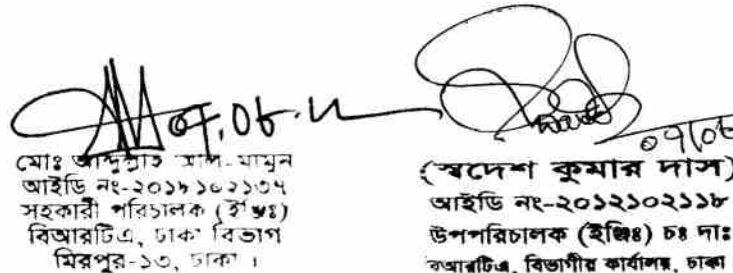 ০৭.০৮.
মোঃ আব্দুল্লাহ আল-মামুন
আইডি নং-২০১৮১০২১৩৭
সহকারী পরিচালক (ইঞ্জিঃ)
বিআরটিএ, ঢাকা বিভাগ
মিরপুর-১৩, ঢাকা ।
০৭/০৮
(স্বদেশ কুমার দাস)
আইডি নং-২০১২১০২১১৮
উপপরিচালক (ইঞ্জিঃ) চঃ দাঃ
বিআরটিএ, বিভাগীয় কার্যালয়, ঢাকা